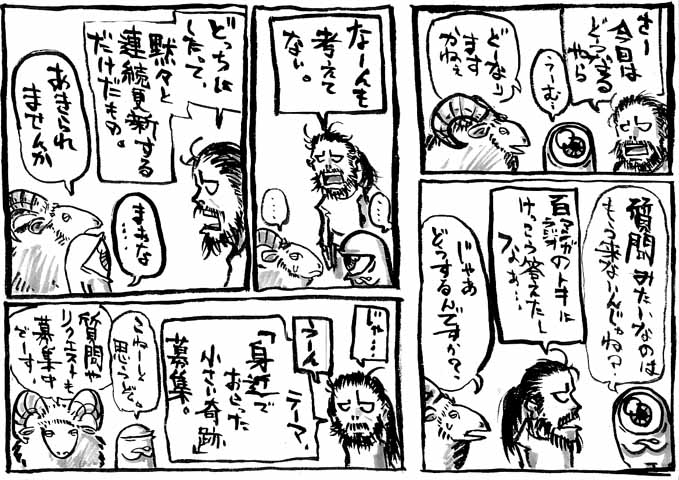 さー
今日は
どうする
やら
うーむ…
どーなり
ます
かねぇ
質問みたいなのは
もう来ないんじゃね？
百アゲのトキに
けっこう答えたし
なぁ…
じゃあ
どうするんですか？
なーんも
考えて
ない。
……
……
どっちに
したって、
黙々と
連続更新する
だけだもの。
あきられ
ませんか
まぁな
……
じゃ…
うーん
テーマ、
「身近で
おこった
小さい奇跡」
募集。
こねーと
思うぞ。
質問や
リクエストも
募集中
でーす。